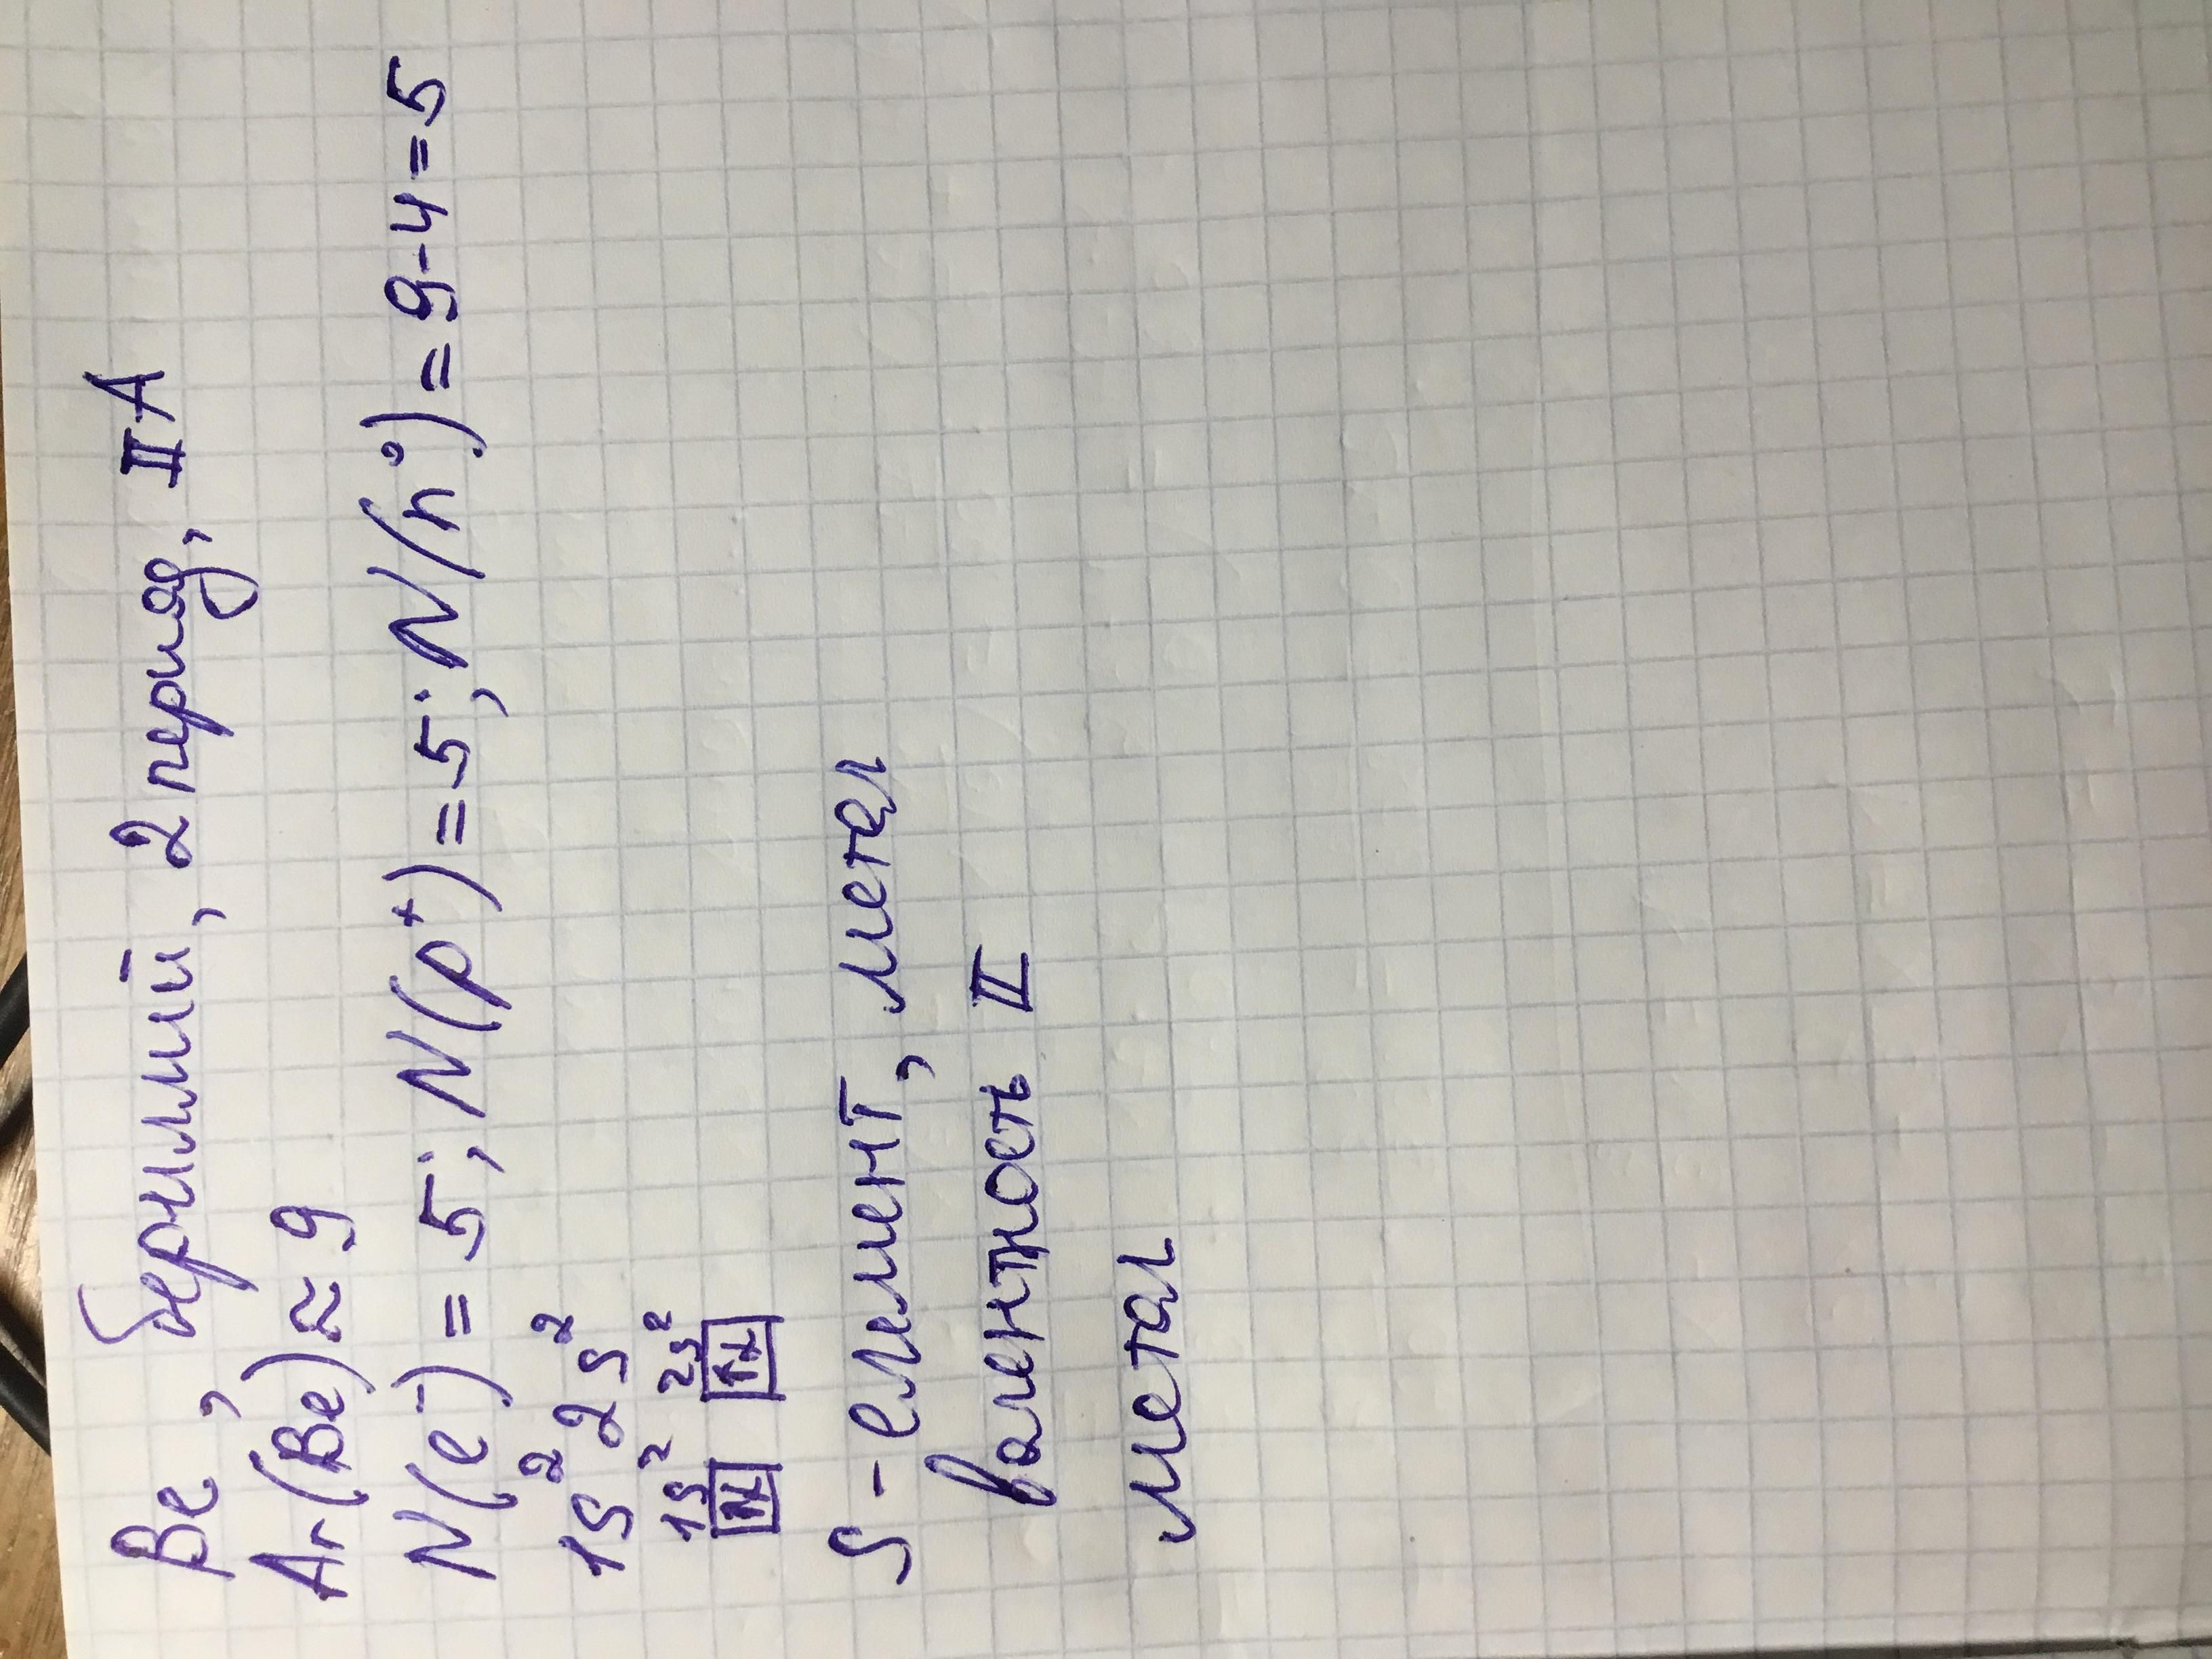 Be, берилий, 2 период, II A
Ar(Be)≈9
N(e⁻)=5; N(p⁺)=5; N(n⁰)=9-4=5
1s² 2s²
1s² 2s²
↑↓ ↑↓
s-елемент, метал
валентность II
метал